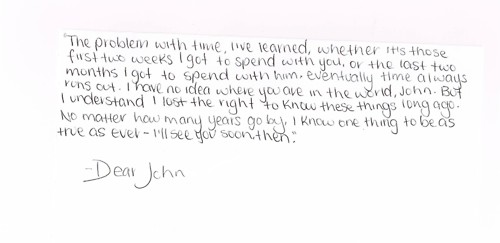 "The problem with time, I've learned, whether it's those
first two weeks I got to spend with you, or the last two
months I got to spend with him, eventually time always
runs out. I have no idea where you are in the world, John. But
I understand I lost the right to know these things long ago.
No matter how many years go by, I know one thing to be as
true as ever - I'll see you soon, then."
-Dear John